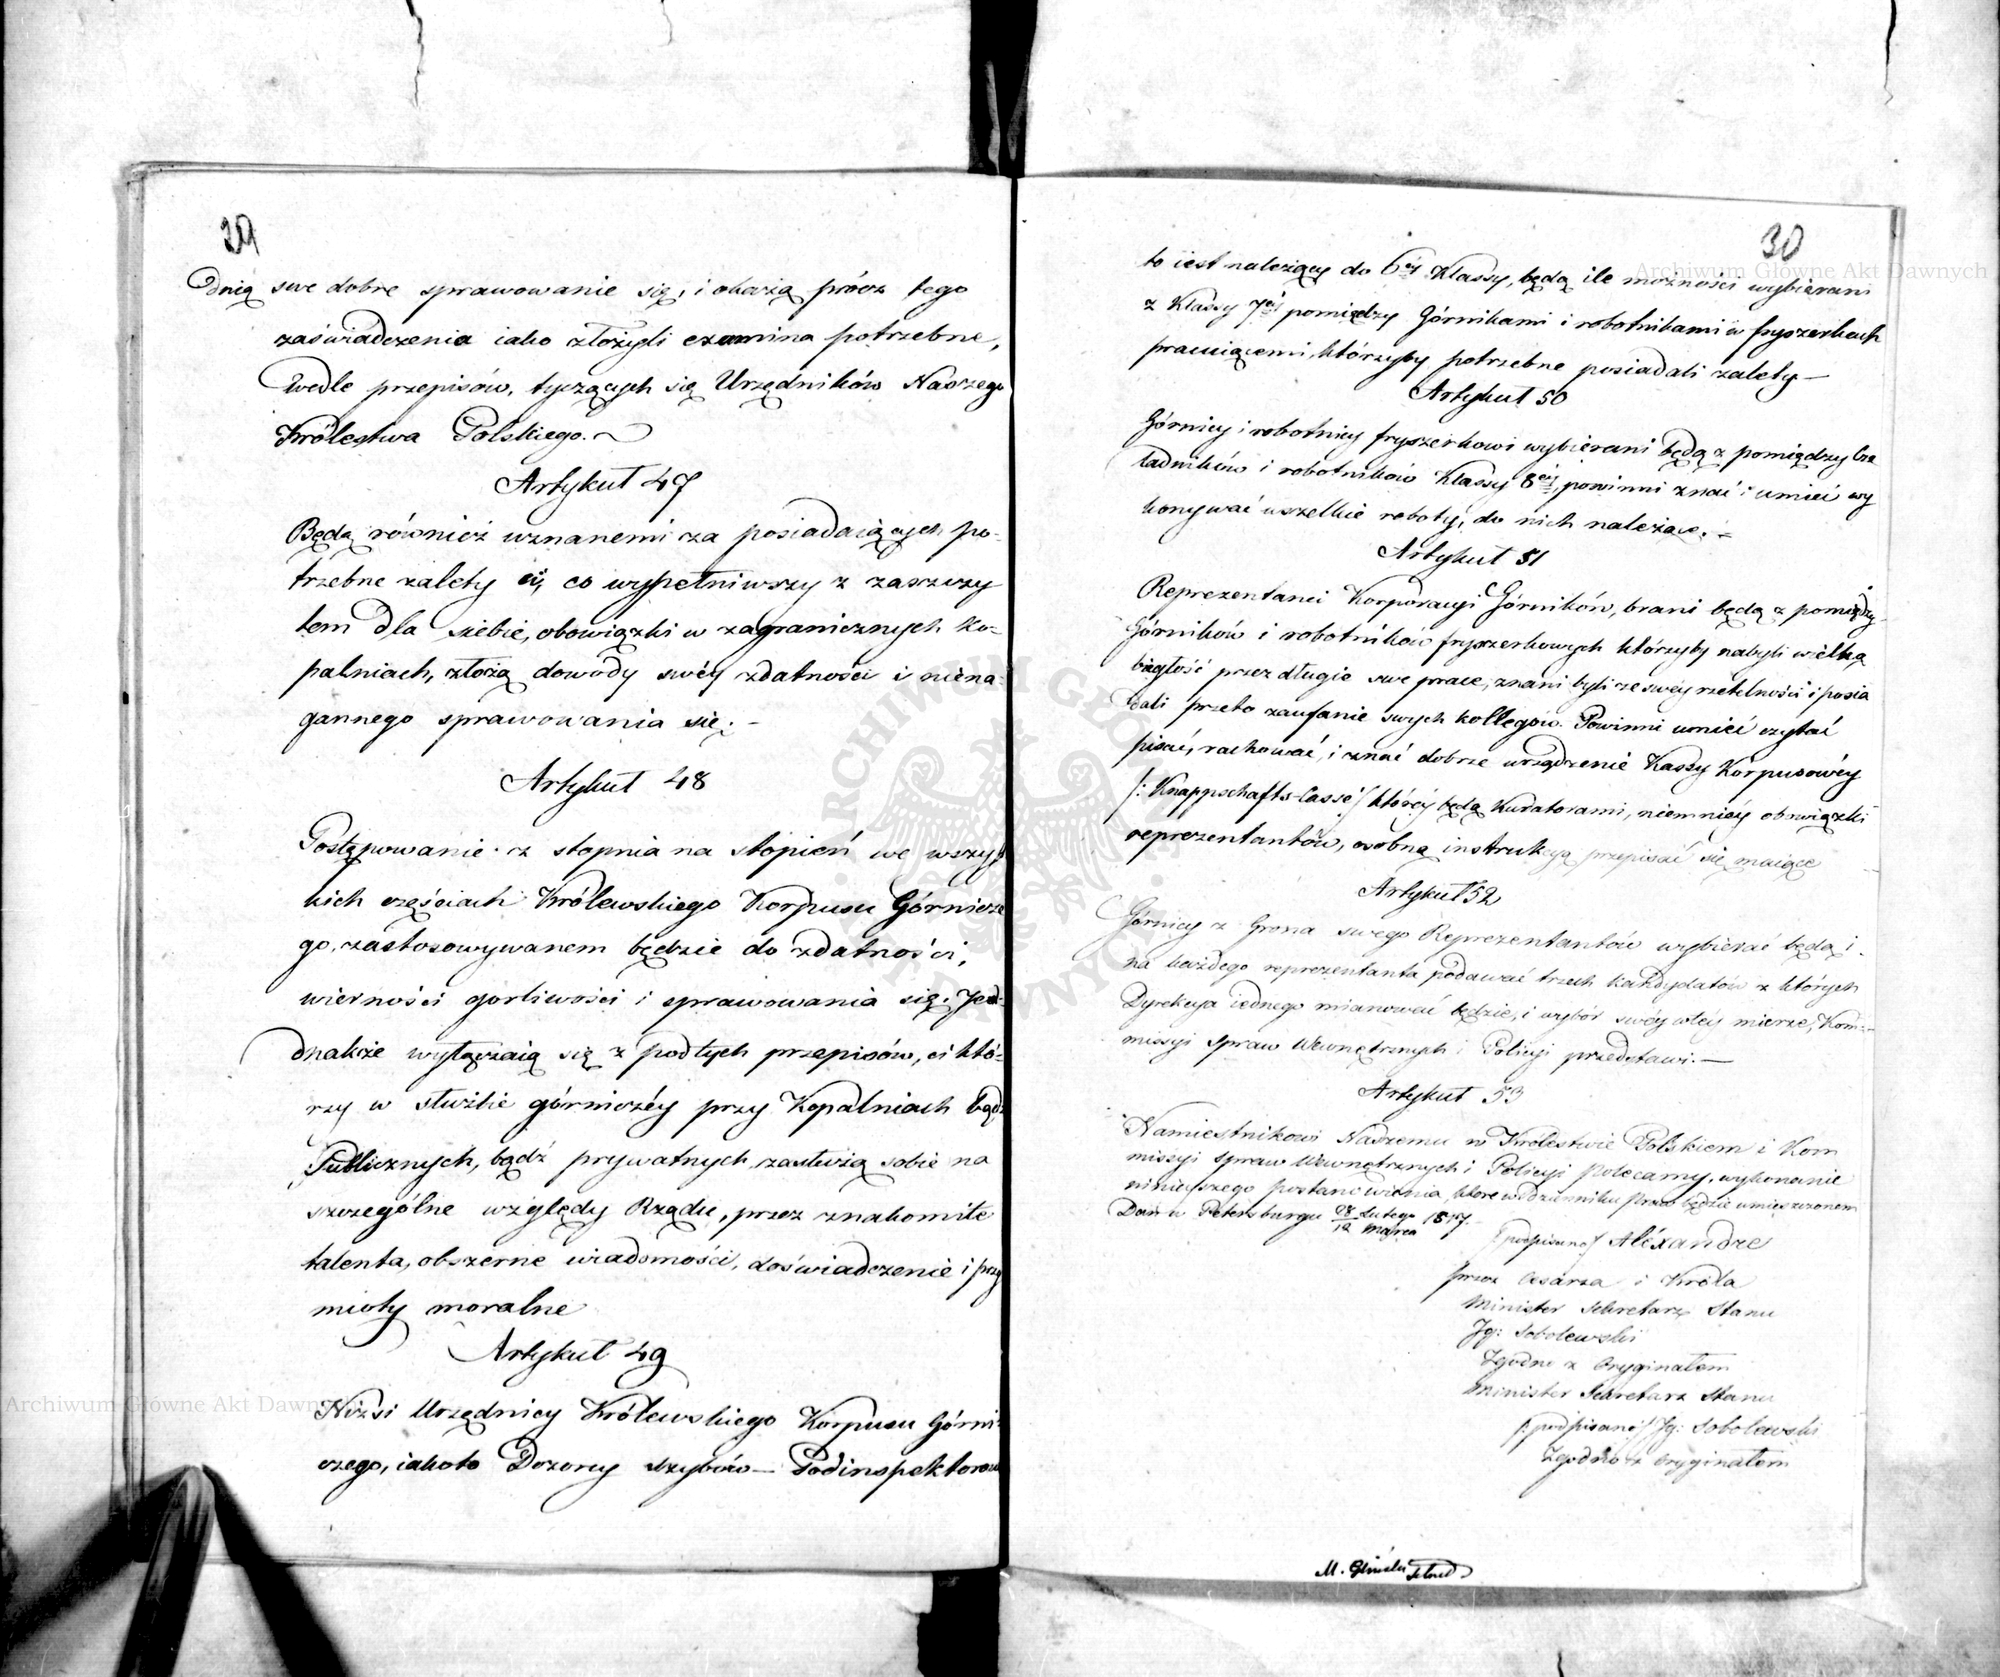 29
dnią swe dobre sprawowanie się, i okażą prócz tego
zaświadczenia iako złożyli examina potrzebne,
wedle przepisów, tyczących się Urzędników Naszego
Królestwa Polskiego.
Artykuł 47
Będą również uznanemi za posiadaiących po-
trzebne zalety ci, co wypełniwszy z zaszczy
tem dla siebie, obowiązki w zagranicznych ko-
palniach, złożą dowody swéy zdatności i niena-
gannego sprawowania się. -
Artykuł 48
Postępowanie z stopnia na stopień we wszy
kich częściach Królewskiego Korpusu Górnicze
go, zastosowywanem będzie do zdatności,
wierności gorliwości i sprawowania się. Jed-
dnakże wyłączaią się z podłych przepisów, ci któ-
rzy w służbie górniczéy przy Kopalniach bądź
Publicznych, bądź prywatnych zasłużą sobie na
szczególne względy Rządu, przez znakomite
talenta, obszerne wiadomości, doświadczenie i przy
mioty moralne
Artykuł 49
Niżsi Urzędnicy Królewskiego Korpusu Górni-
czego, iakoto Dozorcy szybów — Podinspektorow
30
to iest należący do 6éy Klassy, będą ile możności wybierani
z Klassy 7éy pomiędzy Górnikami i robotnikami w fryszerkach
pracuiącemi, którzyby potrzebne posiadali zalety —
Artykuł 50
Górnicy i robotnicy fryszerkowi wybierani będą z pomiędzy Cze
ladników i robotników Klassy 8éy, powinni znać i umieć wy
konywać wszelkie roboty, do nich należące. -
Artykuł 51
Reprezentanci Korporacyi Górników, brani będą z pomiędzy
Górników i robotników fryszerkowych którzyby nabyli wielką
biegłość przez długie swe prace, znani byli ze swéy rzetelności i posia
dali przeto zaufanie swych kollegów. Powinni umieć czytać
pisać, rachować, i znać dobrze urządzenie Kassy Korpusowéy
/: Knappschafts-Casse/ któréy będą Kuratorami, niemniéy obowiązki
reprezentantów, osobną instrukcyą przepisać się maiące
Artykuł 52
Górnicy z Grona swego Reprezentantów wybierać będą i
na każdego reprezentanta podawać trzech kandydatów z których
Dyrekcya iednego mianować będzie, i wybór swéy w téy mierze, Kom-
missyi spraw Wewnętrznych i Policyi przedstawi. —
Artykuł 53
Namiestnikowi Naszemu w Królestwie Polskiem i Kom
missyi spraw Wewnętrznych i Policyi polecamy, wykonanie
ninieyszego postanowienia, które w dzienniku praw będzie umieszczonem
Dan w Petersburgu 28 Lutego 1817.
12 Marca
/podpisano/ Aléxandre
przez Cesarza i Króla
Minister Sekretarz Stanu
Ig: Sobolewski
Zgodno z Oryginałem
Minister Sekretarz Stanu
/: podpisano/ Ig: Sobolewski
Zgodno z Oryginałem
M.
Archiwum Główne Akt Dawnych
Archiwum Główne Akt Dawnych